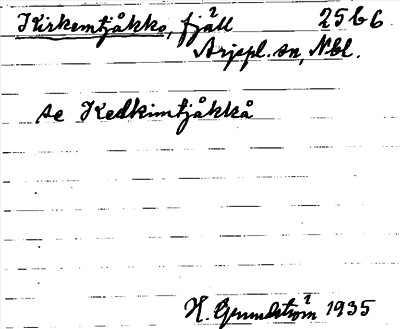 Kirkemtjåkko, fjäll 25 b 6
Arjepl. sn, Nbl.
se Kedkimtjåkkå
H. Grundström 1935